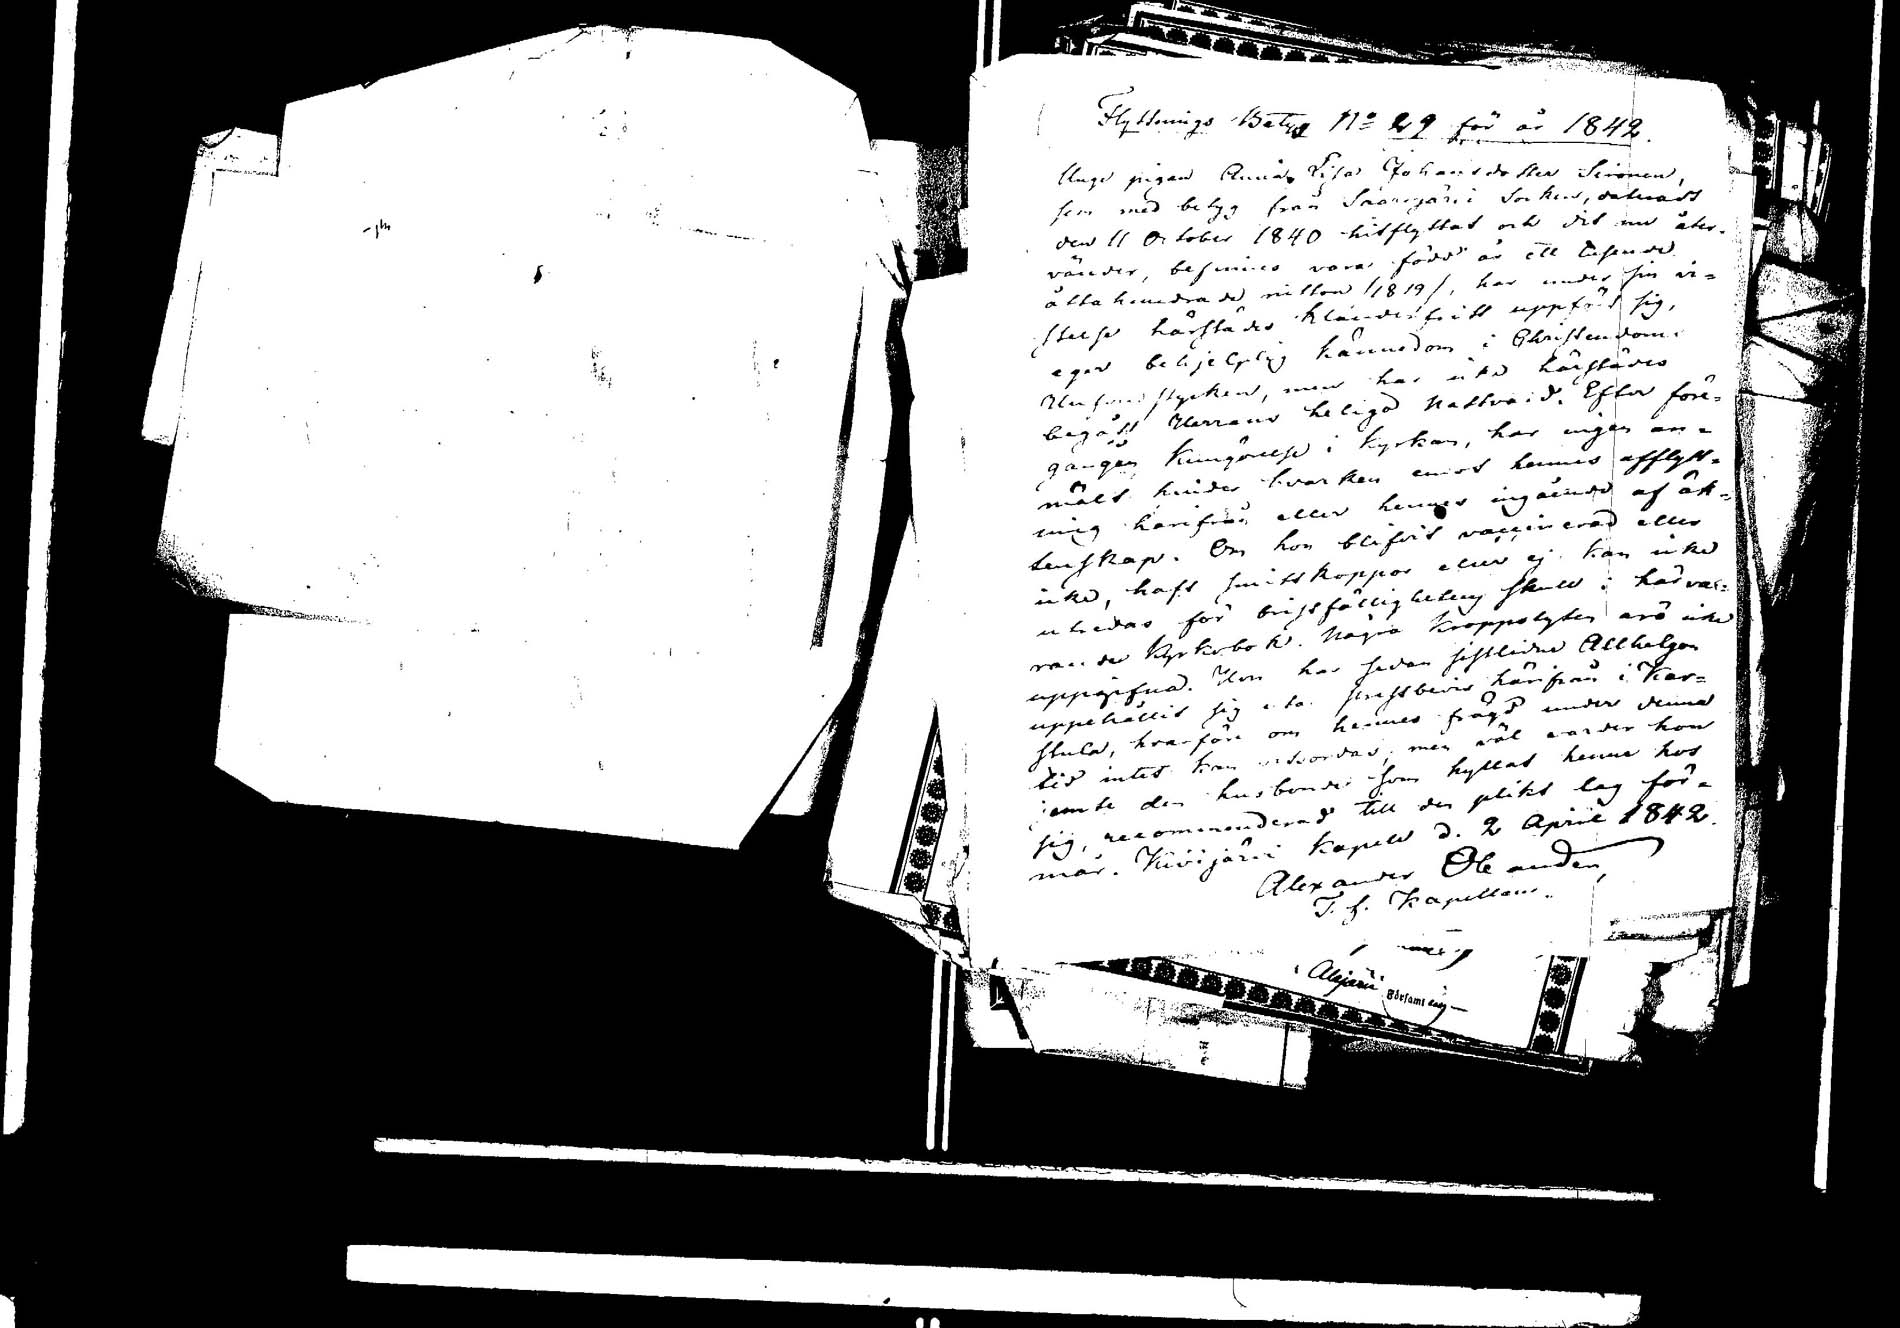 Flyttnings Betyg No 29 för år 1842.
Unga pigan Anna Lisa Johansdotter Sironen,
som med betyg från Saarijärvi Socken, dateradt
den 11 October 1840 hitflyttat och dit nu åter-
vänder, befinnes vara född år ett tusende
åtta hundrade nitton /1819/, har under sin vi-
stelse härstädes klanderfritt uppfört sig,
eger behjelplig kännedom i Christendoms
stycken, men har icke härstädes
begått Herrans heliga Nattvard. Efter före-
gången kungörelse i kyrkan, har ingen an-
mält hinder hvarken emot hennes afflytt-
ning härifrån eller hennes ingående af äk-
tenskap. Om hon blifvit vaccinerad eller
icke, haft smittkoppor eller ej kan icke
utredas för bristfällighetens skull i härva-
rande Kyrkobok. Några kroppslyten äro icke
uppgifna. Hon har sedan sistlidne Allhelgon
uppehållit sig utan prestbevis härifrån i Kar-
stula, hvarföre om hennes frägd under denna
tid intet kan vitsordas; men väl varder hon
jemte den husbonde som hyllat henne hos
sig, recommenderad till den plikt lag för-
mår. Kivijärvi Kapell d. 2 April 1842.
Alexander
T. f. Kapellan.
Alajärvi Församling